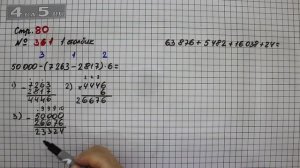 4 на 5
Стр. 80
№ 361 1 столбик
3 1 2
50 000 - (7 263 - 2817) · 6 =
63 876 + 5 482 + 16 038 + 24 =
1) - 7263
2817
4446
2) × 4446
6
26676
3) - 50000
26676
23324